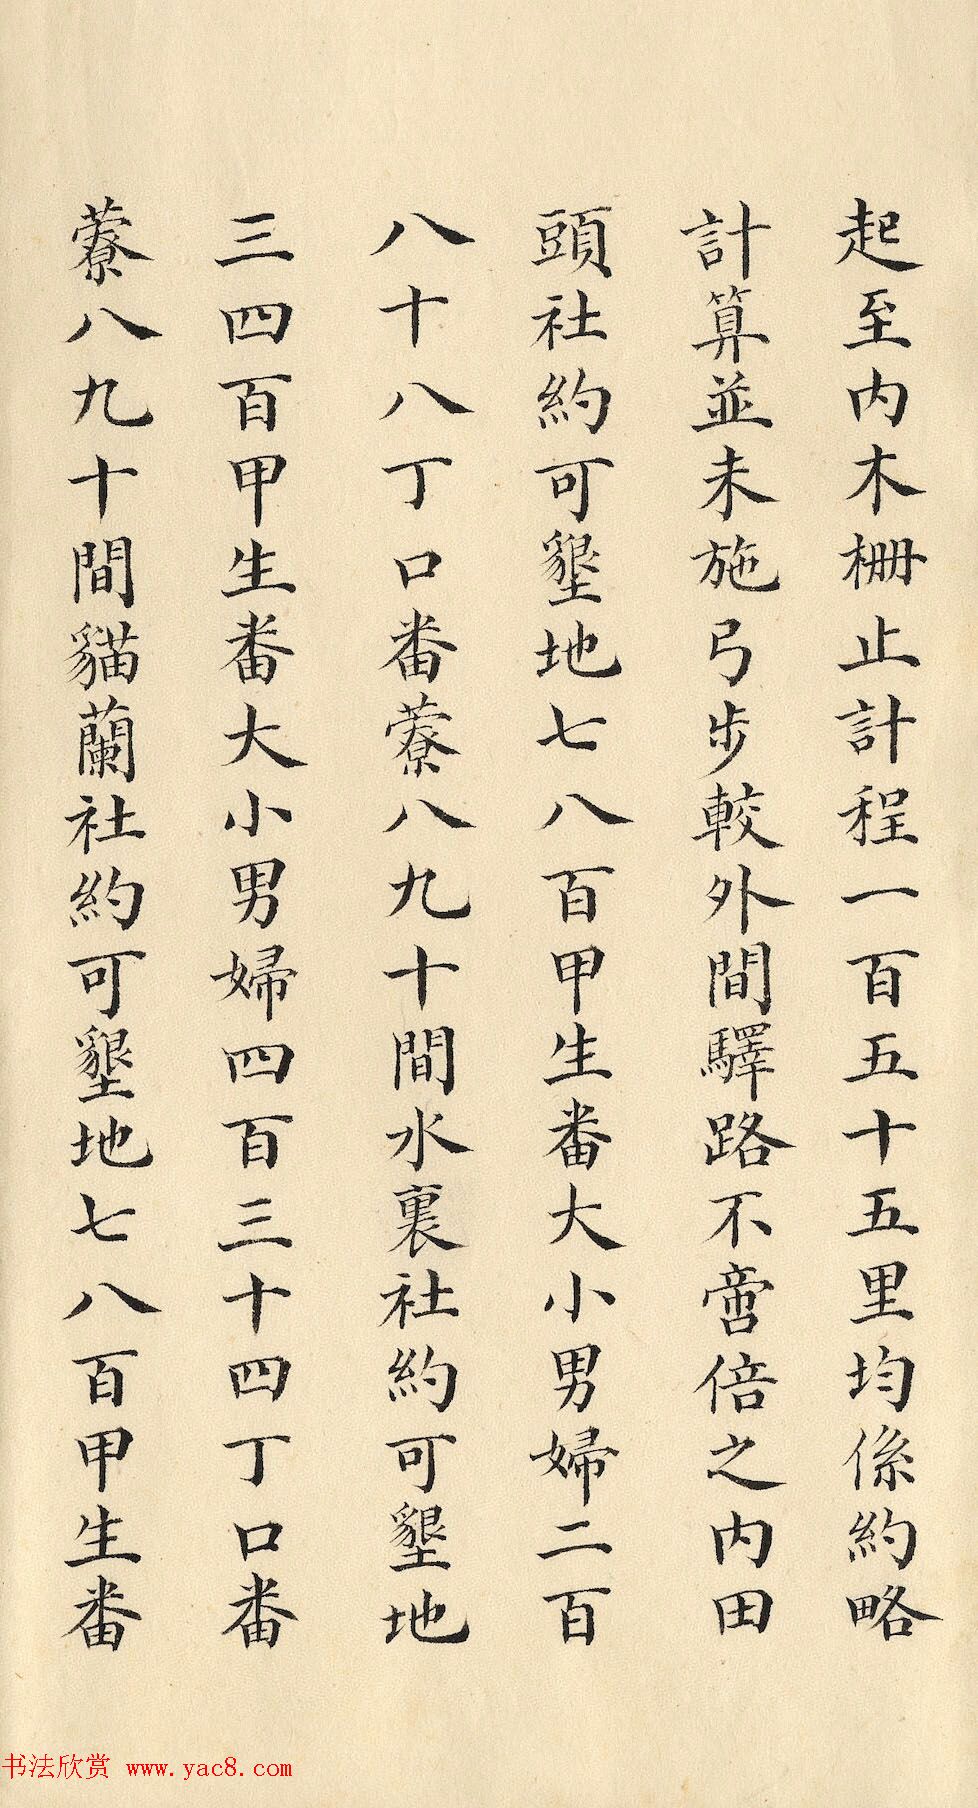 起至内木栅止計程一百五十五里均係約略
計算並未施弓步較外間驛路不啻倍之内田
頭社約可墾地七八百甲生番大小男婦二百
八十八丁口番藔八九十間水裏社約可墾地
三四百甲生番大小男婦四百三十四丁口番
藔八九十間貓蘭社約可墾地七八百甲生番
书法欣赏 www.yac8.com